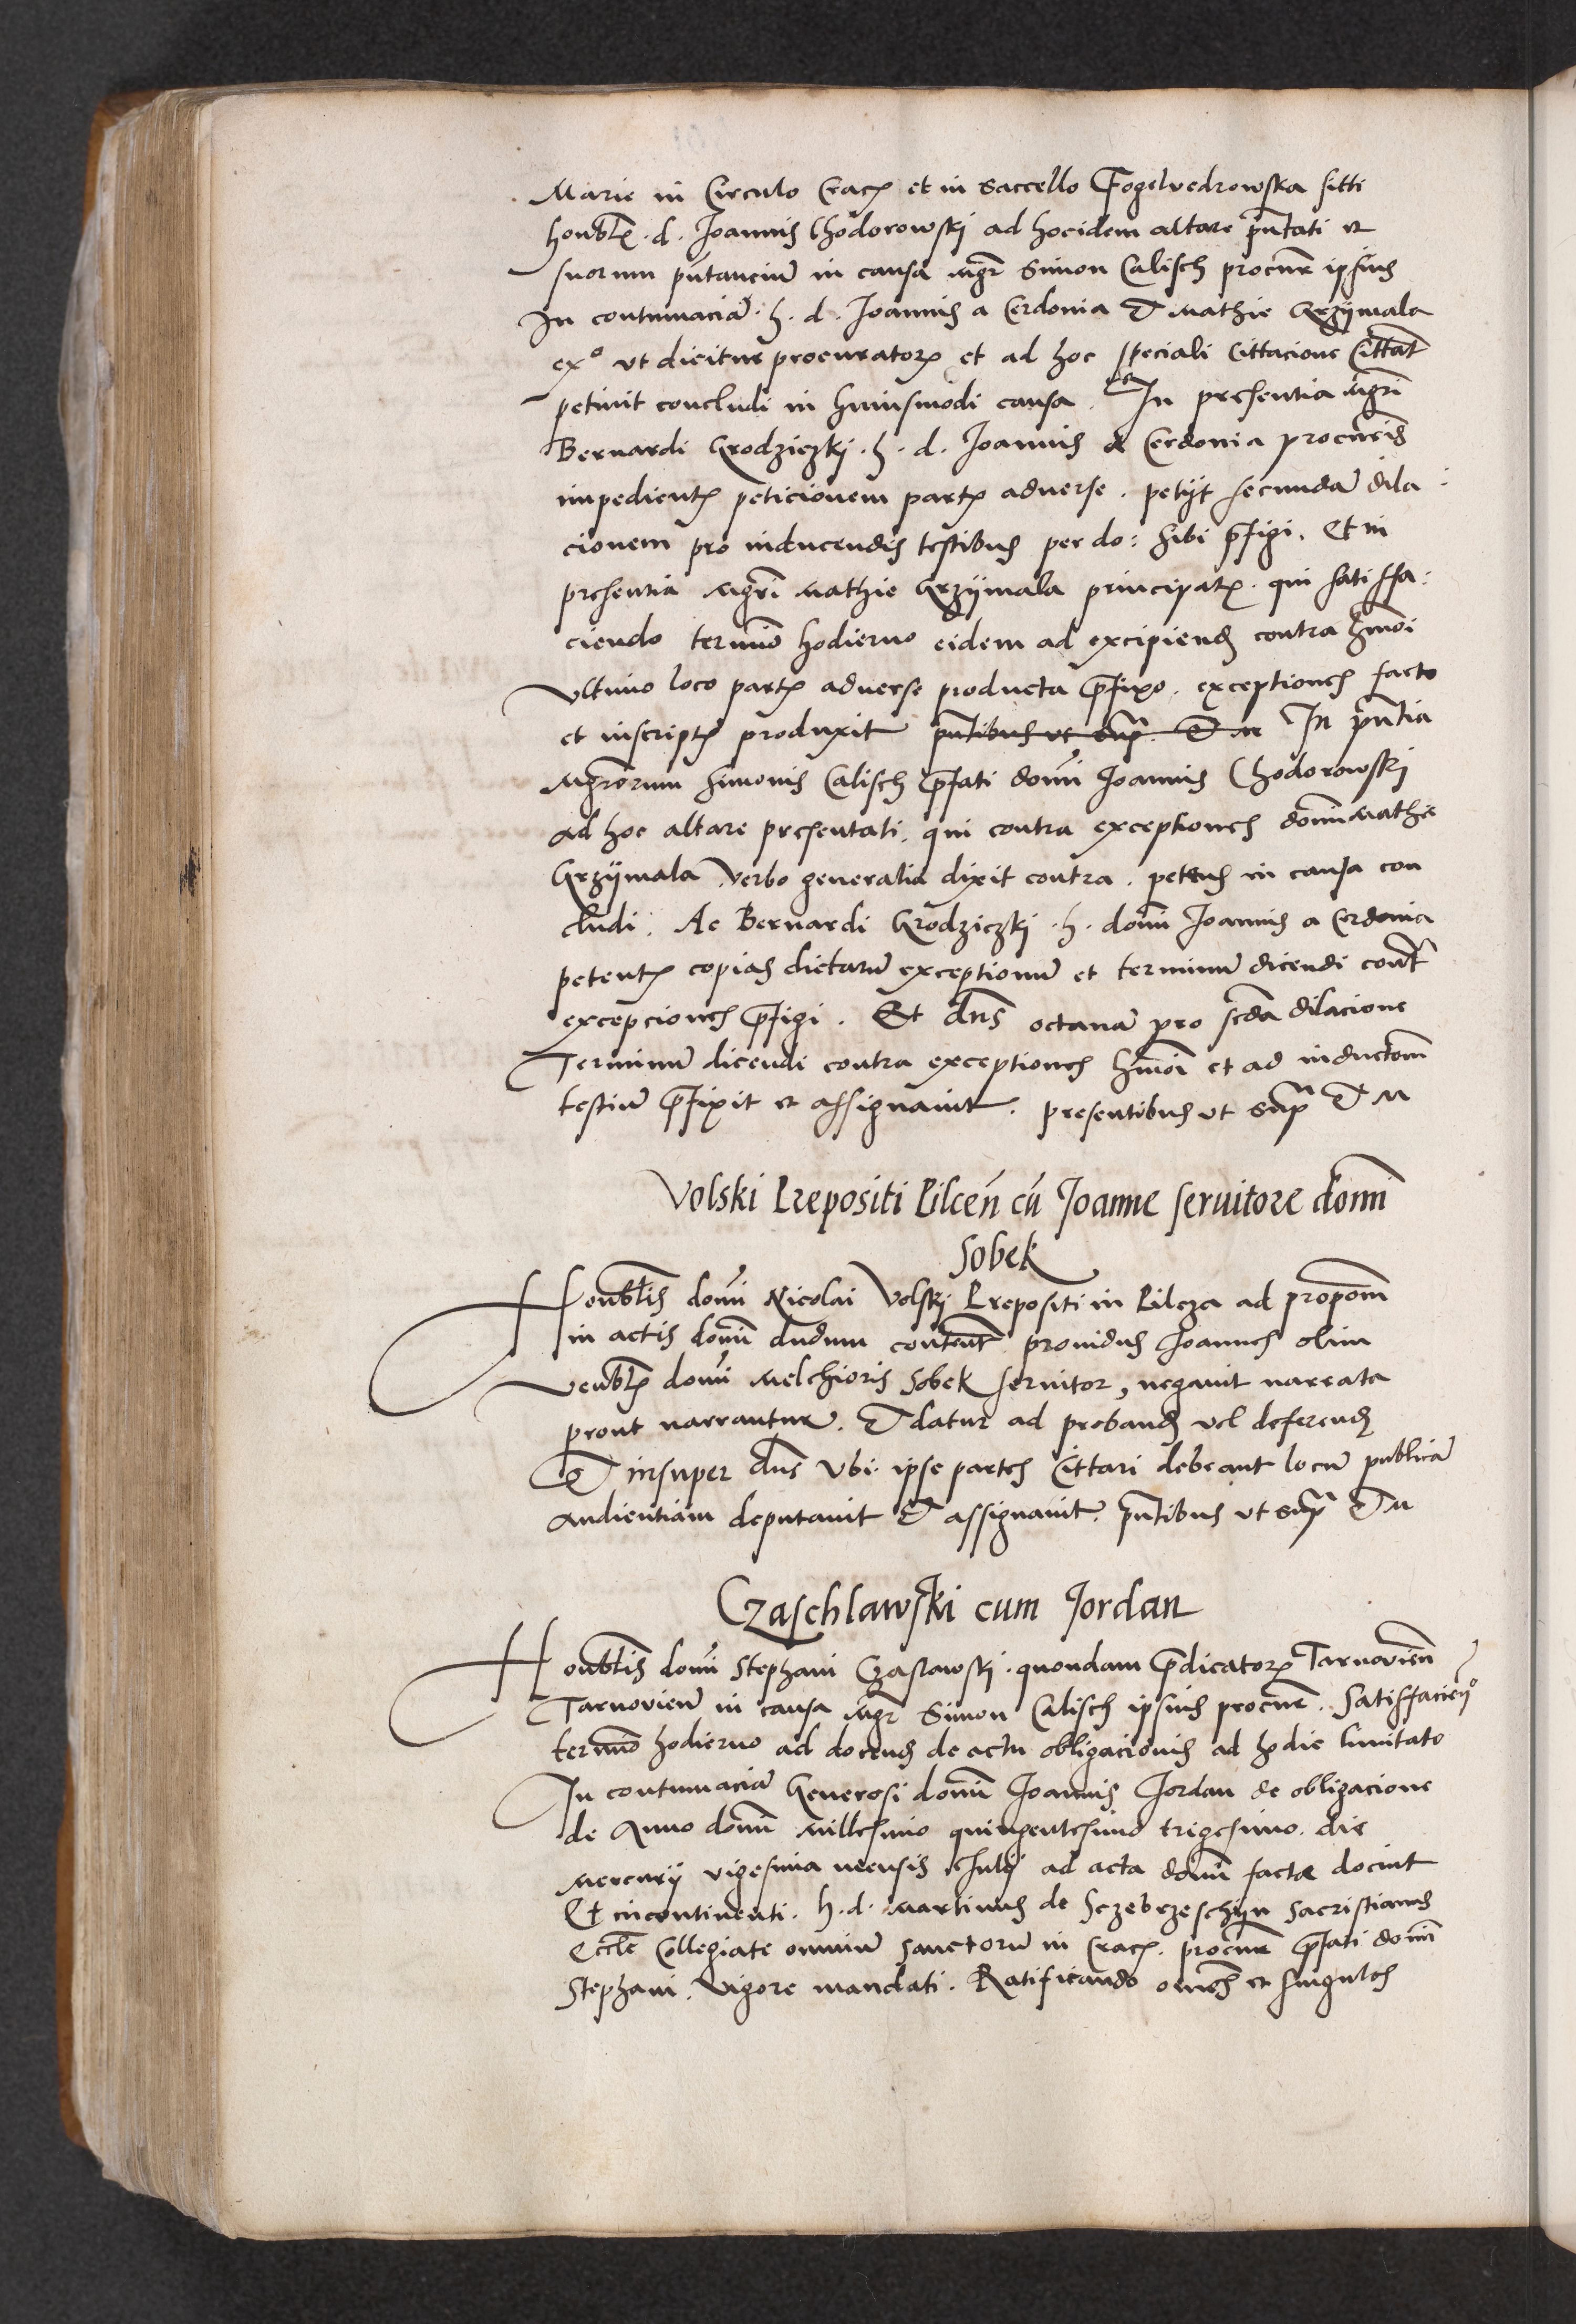 Marie in Circulo Crac̄ et in saccello Fogelvedrowska sitti
honbl̄ . d . Joannis Chodorowski ad hocidem altare pn̄tati et
suorum pn̄tancium in causa mgr̄ Simon Calisch procur̄ ipsius
In contumaciā . h . d . Joannis a Cerdonia & Mathie Grzÿmala
exº ut dicitur procurator̄ et ad hoc speciali Cittacione Cittat̄
petiuit concludi in huiusmodi causa . In presentia mgr̄i
Bernardi Grodziczkj . h . d . Joannis a Cerdonia procur̄is
impedient̄ peticionem part̄ aduerse . petijt secundā dila
cionem pro inducendis testibus per do : sibi p̄figi . Et in
presentia mgr̄i Mathie Grzÿmala principal̄ . qui satisfa :
ciendo termīo hodierno eidem ad excipiend̄ contra hm̄oi
Vltimo loco part̄ aduerse producta p̄fixo . exceptiones facto
et inscript̄ produxit pn̄tibus ut sup̄ & M In pn̄tia
mgr̄orum Simonis Calisch p̄fati domī Joannis Chodorowskj
ad hoc altare presentati . qui contra exceptiones domī Mathie
Grzÿmala verbo generalia dixit contra . petens in causa con
cludi . Ac Bernardi Grodziczkj . h . domī Joannis a Cerdonia
petent̄ copias dictarū exceptionū et terminū dicendi cont̄
excepciones p̄figi . Et dn̄s octauā pro scd̄a dilacione
Terminū dicendi contra exceptiones hm̄oi et ad inductōm
testiū p̄fixit et assignauit . presentibus ut sup̄ & M
Volski Prepositi Pilcen̄ cū Joanne seruitore domī
Sobek
Honbl̄is domī Nicolai Volskj Prepositi in Pilcza ad propōm
in actis domī dudum content̄ prouidus Joannes olim
Venbl̄ domī Melchioris Sobek seruitor, negauit narrata
prout narrantur . & datur ad proband̄ vel deferend̄
Et insuper dn̄s Vbi ipse partes Cittari debeant locū publicā
audientiam deputauit & assignauit . pn̄tibus ut sup̄ & M
Czaschlawski cum Jordan
Honbl̄is domī Stephani Czaslawskj . quondam p̄dicator̄ Tarnovien̄
Tarnovien̄ in causa mgr̄ Simon Calisch ipsius procur̄ . Satisfacienº
termīo hodierno ad docend̄ de actu obligacionis ad hodie limitato
In contumaciā Generosi domī Joannis Jordan de obligacione
de Anno domī Millesimo quingentesimo trigesimo . die
Mercurÿ vigesima mensis Julÿ ad acta domī facta docuit
Et incontinenti . h . d . Martinus de Sczebrzeschÿn Sacristianus
Eccl̄e Collegiate omniū sanctorū in Crac̄ . procur̄ p̄fati domī
Stephani . vigore mandati . Ratificando omēs et singulos